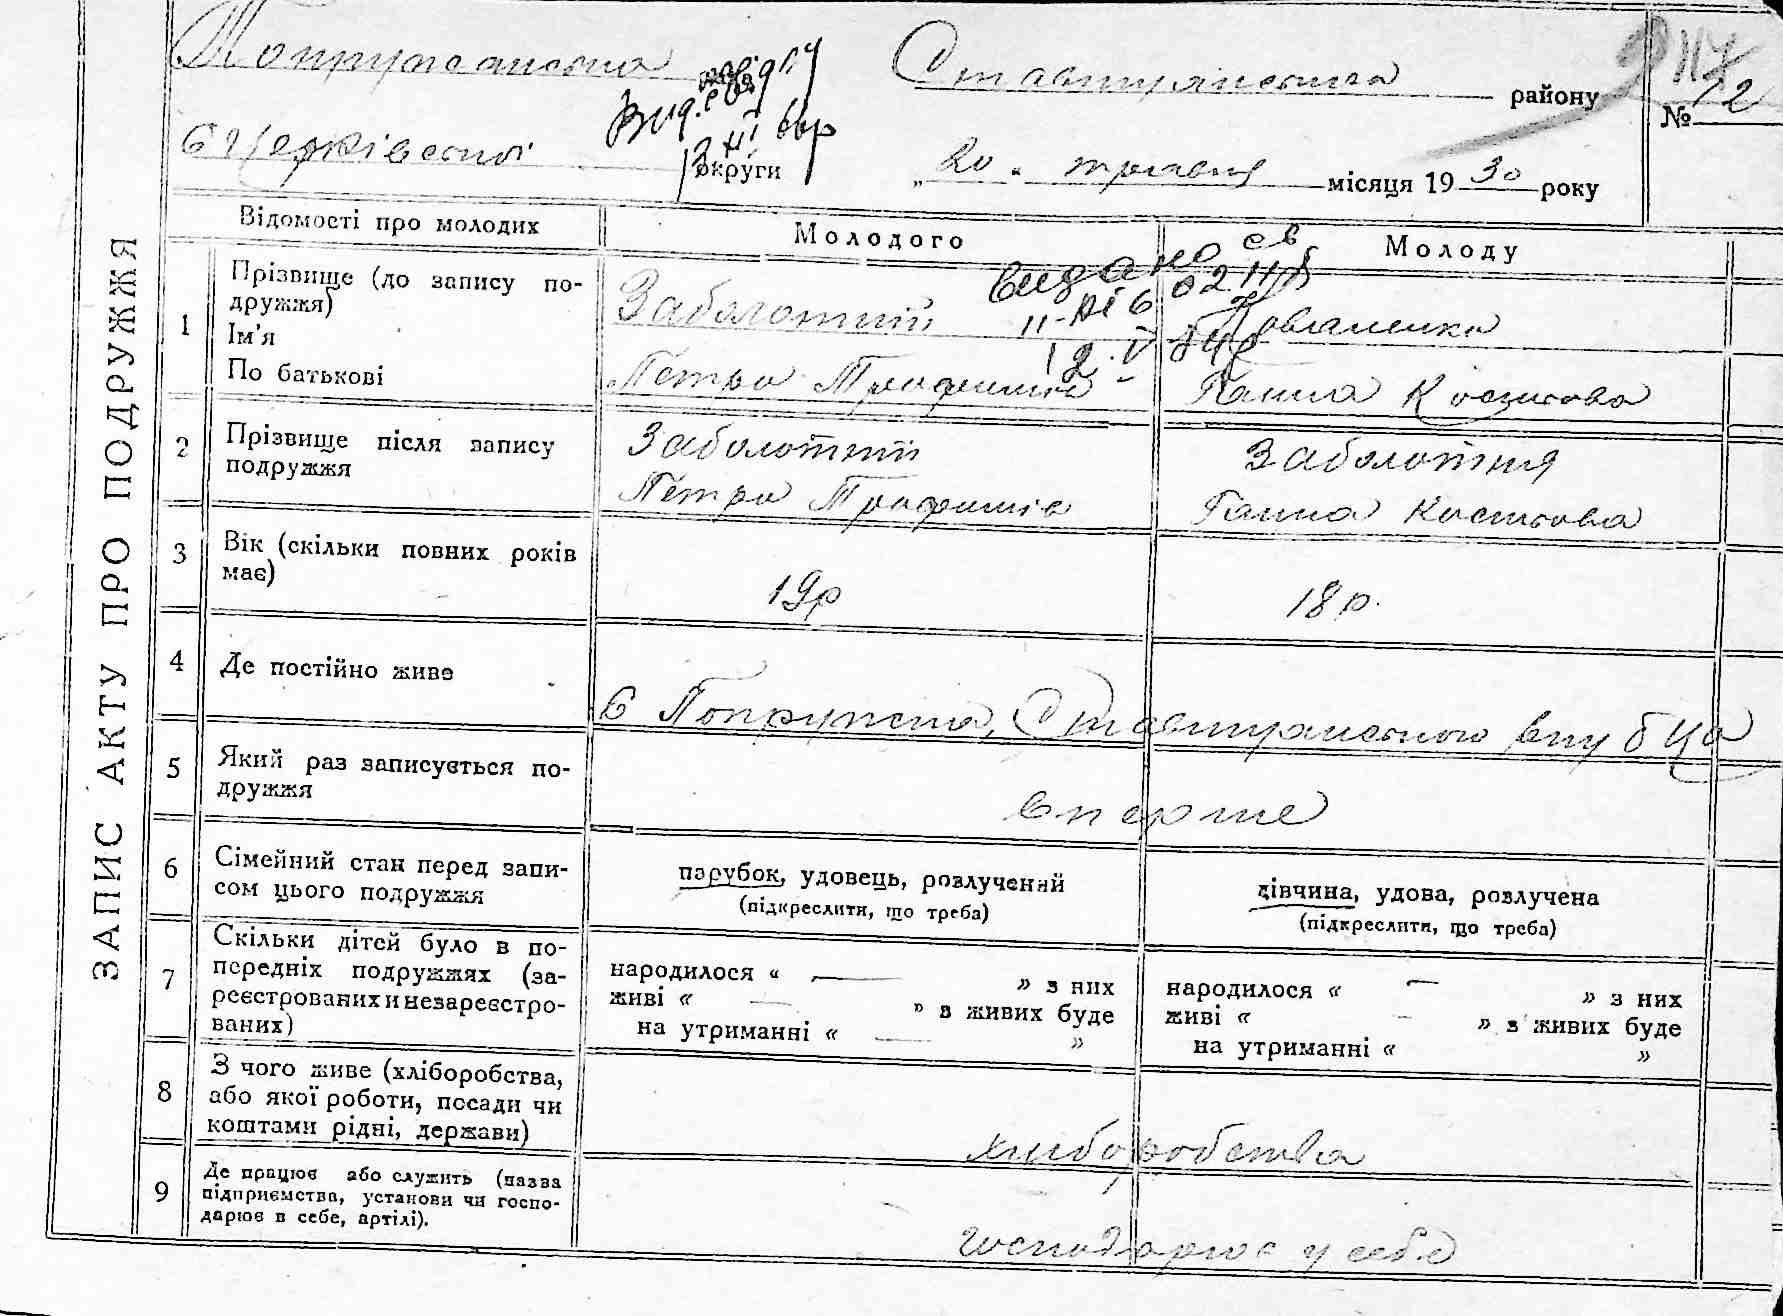 Ставищанського району
№ 12
округи
„20“ травня місяця 1930 року
ЗАПИС АКТУ ПРО ПОДРУЖЖЯ
Відомості про молодих
Молодого
Молоду
1
Прізвище (до запису по-
дружжя)
Ім'я
По батькові
Заболотний
Петро Трофимів
видано св
Коваленко
Ганна Костьова
2
Прізвище після запису
подружжя
Заболотній
Петро Трофимів
Заболотня
Ганна Костьова
3
Вік (скільки повних років
має)
19р
18р.
4
Де постійно живе
с Попружна, Ставищанського
5
Який раз записується по-
дружжя
вперше
6
Сімейний стан перед запи-
сом цього подружжя
парубок, удовець, розлучений
(підкреслити, що треба)
дівчина, удова, розлучена
(підкреслити, що треба)
7
Скільки дітей було в по-
передніх подружжях (за-
реєстрованих и незареєстро-
ваних)
народилося « — » з них
живі « — » з живих буде
на утриманні « — »
народилося « — » з них
живі « — » з живих буде
на утриманні « »
8
З чого живе (хліборобства,
або якої роботи, посади чи
коштами рідні, держави)
хліборобства
9
Де працює або служить (назва
підприємства, установи чи госпо-
дарює в себе, артілі).
господарює у себе